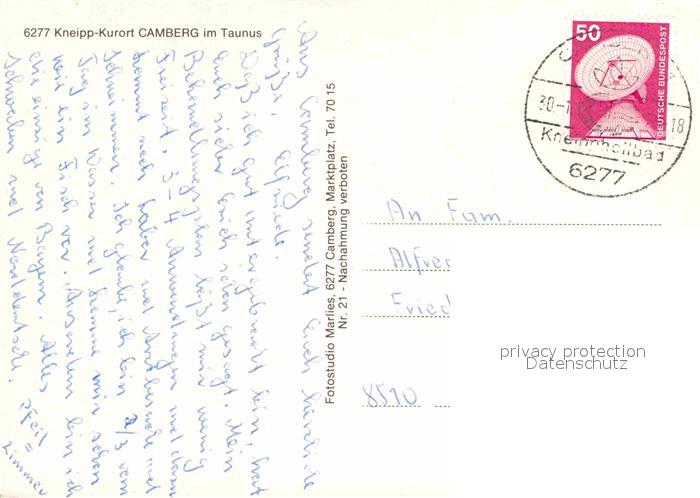 6277 Kneipp-Kurort CAMBERG im Taunus
Aus Camberg sendet Euch herzliche
Grüße, Elfriede.
Daß ich gut untergebracht bin, hat
Euch sicher Erich schon gesagt. Mein
Behandlungsplan läßt mir wenig
Freizeit. 3-4 Anwendungen und dann
kommt noch haben und Arztbesuche und
Schwimmen. Ich glaube, ich bin 2/3 vom
Tag im Wasser und komme mir schon
wie ein Fisch vor. Ausserdem bin ich
die einzige von Bayern. Alles
Schwaben und Norddeutsche.
2 Bett=
zimmer
Fotostudio Marlies, 6277 Camberg, Marktplatz, Tel. 70 15
Nr. 21 - Nachahmung verboten
50
DEUTSCHE BUNDESPOST
30.-1
18
Kneippheilbad
6277
An Fam.
Alfred
Fried
8510
privacy protection
Datenschutz